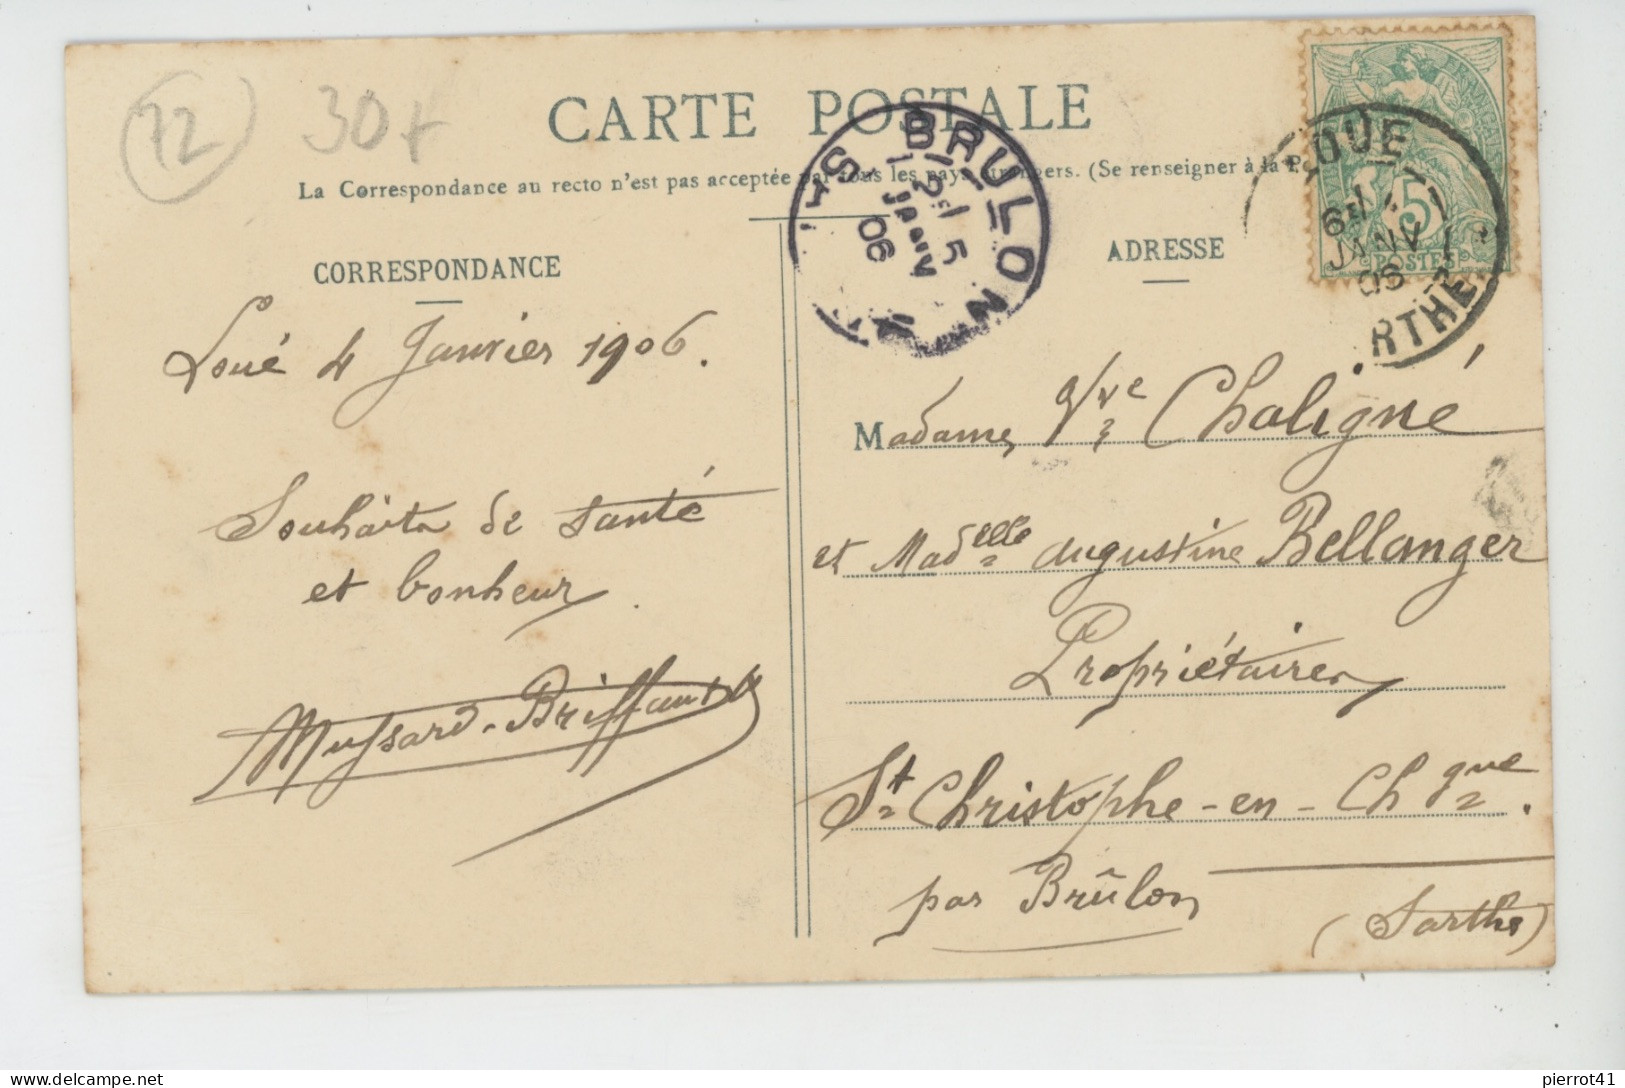 72
30+
CARTE POSTALE
La Correspondance au recto n'est pas acceptée par tous les pays étrangers. (Se renseigner à la
CORRESPONDANCE
ADRESSE
BRULON
2E 5
JANV
06
LOUE
6E
JANV
06
RTHE
5
POSTES
Loué 4 Janvier 1906.
Souhaits de santé
et bonheur.
Mussard-Briffault
Madame Vve Chaligné
et Madelle Augustine Bellanger
Propriétaires
St Christophe-en-Chgne.
par Brûlon
(Sarthe)
pierrot41